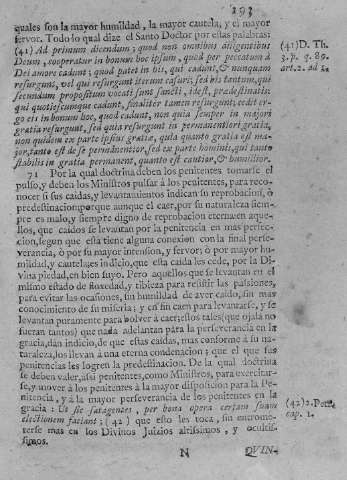 193
quales son la mayor humildad, la mayor cautela, y el mayor
fervor. Todo lo qual dize el Santo Doctor por estas palabras:
(41) Ad primum dicendum; quod non omnibus diligentibus
Deum, cooperatur in bonum hoc ipsum, quod per peccatum à
Dei amore cadunt; quod patet in his, qui cadunt, & nunquam
resurgunt, vel qui resurgunt iterum casuri; sed his tantum, qui
secundum propositum vocati sunt sancti, idest, prædestinatis:
qui quotiescumque cadunt, finaliter tamen resurgunt; cedit er-
go eis in bonum hoc, quod cadunt, non quia semper in majori
gratia resurgunt, sed quia resurgunt in permanentiori gratia,
non quidem ex parte ipsius gratiæ, quia quanto gratia est ma-
jor, tanto est de se permanentior, sed ex parte hominis, qui tanto
stabilis in gratia permanent, quanto est cautior, & humilior.
(41) D. Th.
3. p. q. 89.
art. 2. ad 1.
71 Por la qual doctrina deben los penitentes tomarse el
pulso, y deben los Ministros pulsar à los penitentes, para reco-
nocer si sus caidas, y levantamientos indican su reprobacion, ò
predestinacion; porque aunque el caer, por su naturaleza siem-
pre es malo, y siempre digno de reprobacion eterna en aque-
llos, que caidos se levantan por la penitencia en mas perfec-
cion, segun que esta tiene alguna conexion con la final perse-
verancia, ò por su mayor intension, y fervor; ò por mayor hu-
mildad, y cautela, es indicio, que esta caida les cede, por la Di-
vina piedad, en bien suyo. Pero aquellos que se levantan en el
mismo estado de floxedad, y tibieza para resistir las passiones,
para evitar las ocasiones, sin humildad de aver caido, sin mas
conocimiento de su miseria; y en fin caen para levantarse, y se
levantan puramente para volver à caer; estos tales (que ojala no
fueran tantos) que nada adelantan para la perseverancia en la
gracia, dàn indicio, de que estas caidas, mas conforme à su na-
turaleza, los llevan à una eterna condenacion; que el que sus
penitencias les logren la predestinacion. De la qual doctrina
se deben valer, assi penitentes, como Ministros, para exercitar-
se, y mover à los penitentes à la mayor disposicion para la Pe-
nitencia, y à la mayor perseverancia de los penitentes en la
gracia: Ut sic satagentes, per bona opera certam suam
electionem faciant; (42) que esto les toca, sin entrome-
terse mas en los Divinos Juizios altissimos, y ocultis-
simos.
(42) 2. Petr.
cap. 1.
N QUIN-